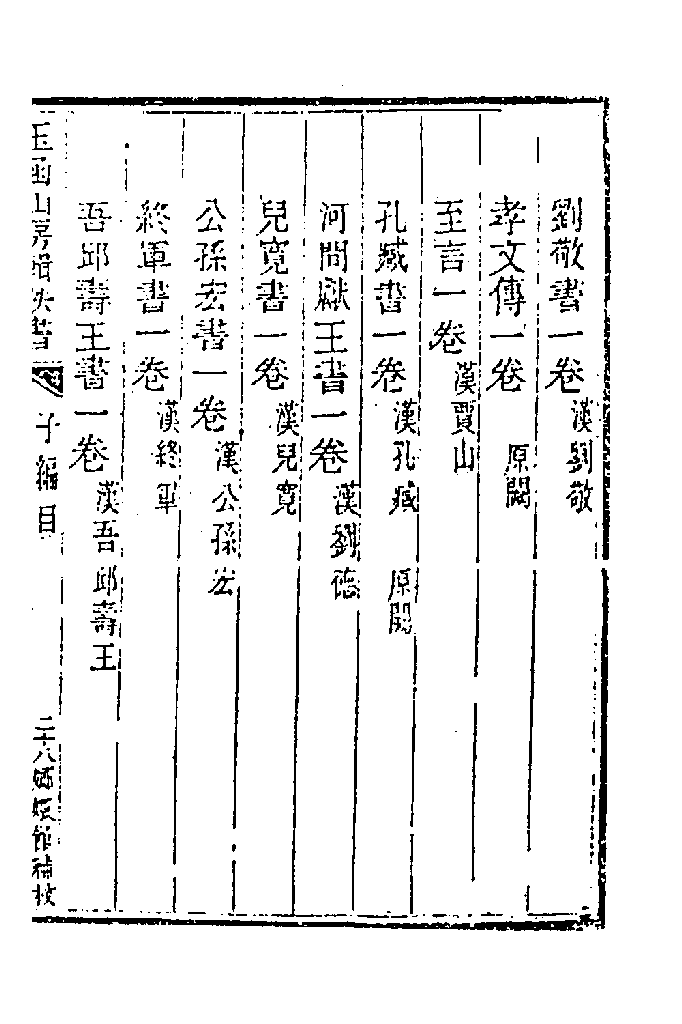 劉敬書一卷 漢劉敬
孝文傳一卷 原闕
至言一卷 漢賈山
孔臧書一卷 漢孔臧 原闕
河間獻王書一卷 漢劉德
兒寬書一卷 漢兒寬
公孫宏書一卷 漢公孫宏
終軍書一卷 漢終軍
吾邱壽王書一卷 漢吾邱壽王
玉函山房輯佚書 子編目 二十八 嫏嬛館補校